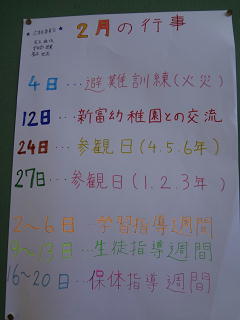 2月の行事
4日…避難訓練(火災)
12日…新富幼稚園との交流
24日…参観日(4.5.6年)
27日…参観日(1.2.3年)
2〜6日…学習指導週間
9〜13日…生徒指導週間
16〜20日…保体指導週間